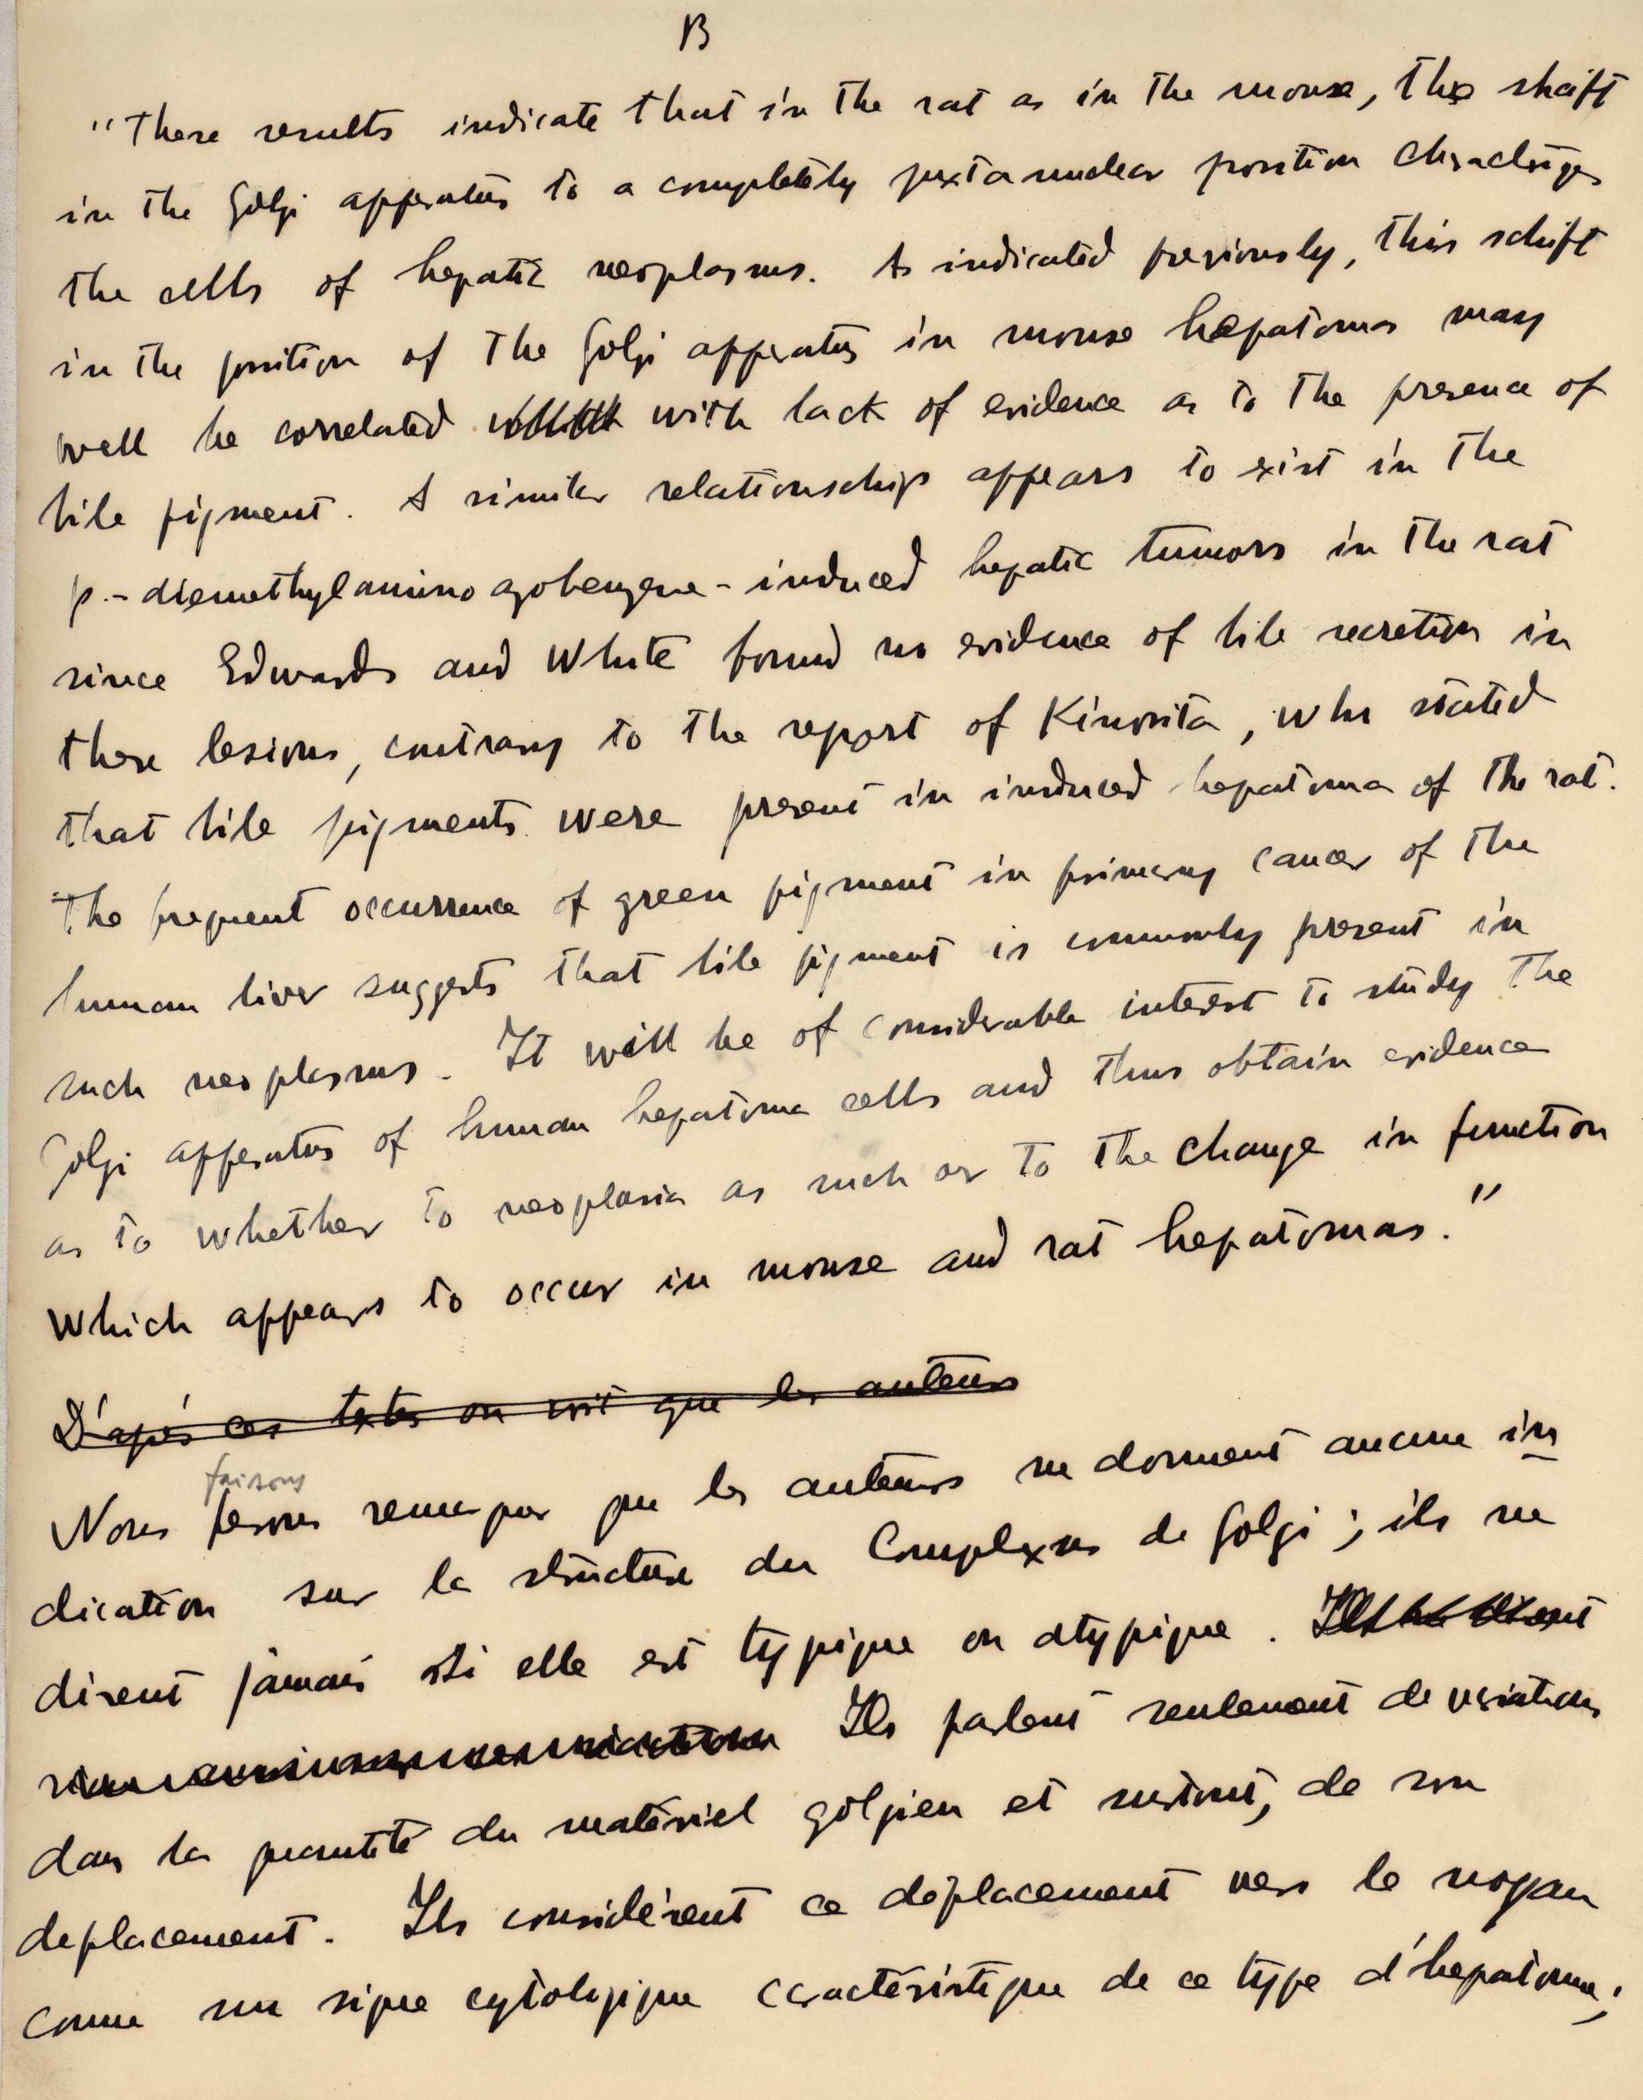 B
"These results indicate that in the rat as in the mouse, the shift
in the Golgi apparatus to a completely juxtanuclear position characterizes
the cells of hepatic neoplasms. As indicated previously, this schift
in the position of the Golgi apparatus in mouse hepatomas may
well be correlated with lack of evidence as to the presence of
bile pigment. A similar relationschip appears to exist in the
p.-diemethylamino azobenzene-induced hepatic tumors in the rat
since Edwards and White found no evidence of bile secretion in
these lesions, contrary to the report of Kinosita, who stated
that bile pigments were present in induced hepatoma of the rat.
The frequent occurrence of green pigment in primary cancer of the
human liver suggests that bile pigment is commonly present in
such neoplasms. It will be of considerable interest to study the
Golgi apparatus of human hepatoma cells and thus obtain evidence
as to whether to neoplasia as such or to the change in function
which appears to occur in mouse and rat hepatomas."
D'aprés ces textes on voit que les auteurs
faisons
Nous fesons remarquer que les auteurs ne donnent aucune in
dication sur la structure du Complexus de Golgi; ils ne
disent jamais si elle est typique ou atypique.
Ils parlent seulement de variations
dans la quantité du matériel golgien et surtout, de son
deplacement. Ils considérent ce déplacement vers le noyau
comme un signe cytologique caractéristique de ce type d'hepatome;